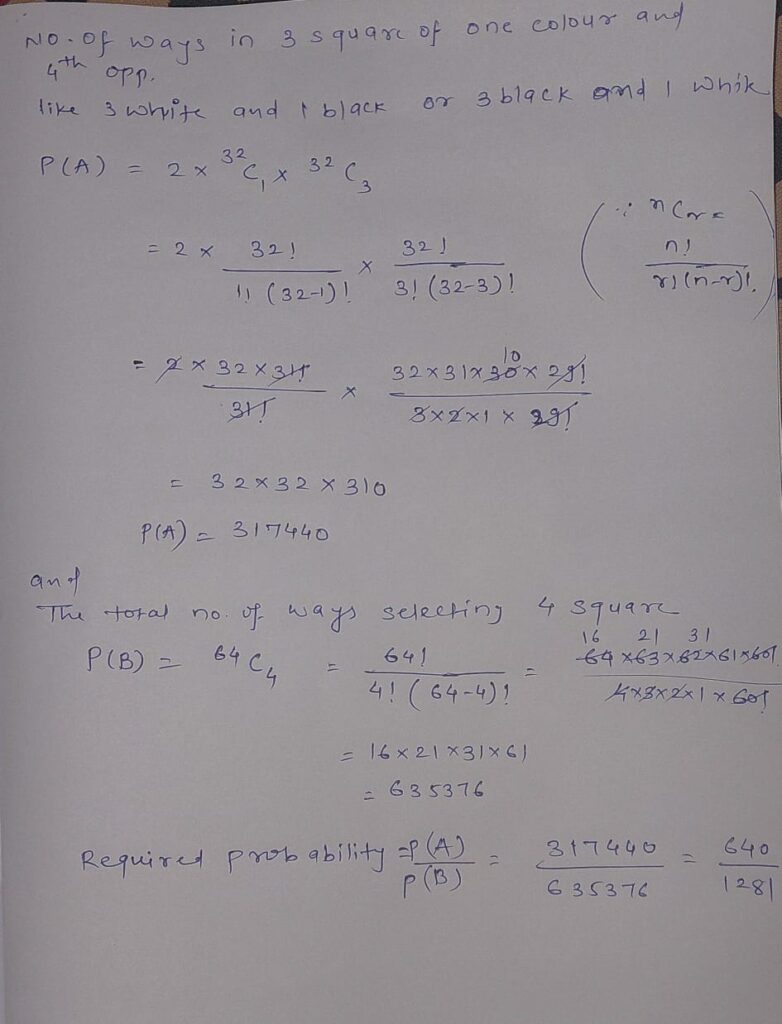 No. of ways in 3 square of one colour and
4th opp.
like 3 white and 1 black or 3 black and 1 white
P(A) = 2 × ³²C₁ × ³²C₃
= 2 × 32! / 1! (32-1)! × 32! / 3! (32-3)! (∵ nCr = n! / r! (n-r)!)
= 2 × 32 × 31! / 31! × 32×31×30×29! / 3×2×1 × 29! 10
= 32 × 32 × 310
P(A) = 317440
and
The total no. of ways selecting 4 square
16 21 31
P(B) = ⁶⁴C₄ = 64! / 4! (64-4)! = 64×63×62×61×60! / 4×3×2×1 × 60!
= 16 × 21 × 31 × 61
= 635376
Required probability = P(A) / P(B) = 317440 / 635376 = 640 / 1281